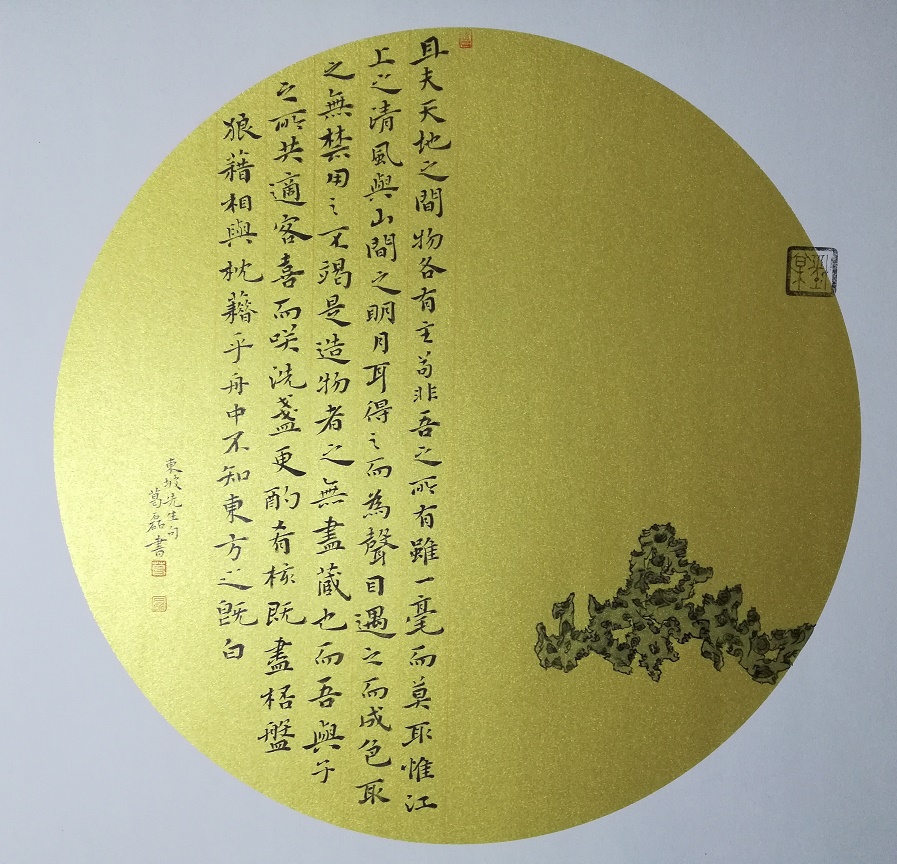 且夫天地之間物各有主苟非吾之所有雖一毫而莫取惟江
上之清風與山間之明月耳得之而為聲目遇之而成色取
之無禁用之不竭是造物者之無盡藏也而吾與子
之所共適客喜而咲洗盞更酌肴核既盡桮盤
狼藉相與枕藉乎舟中不知東方之既白
東坡先生句
葛磊書